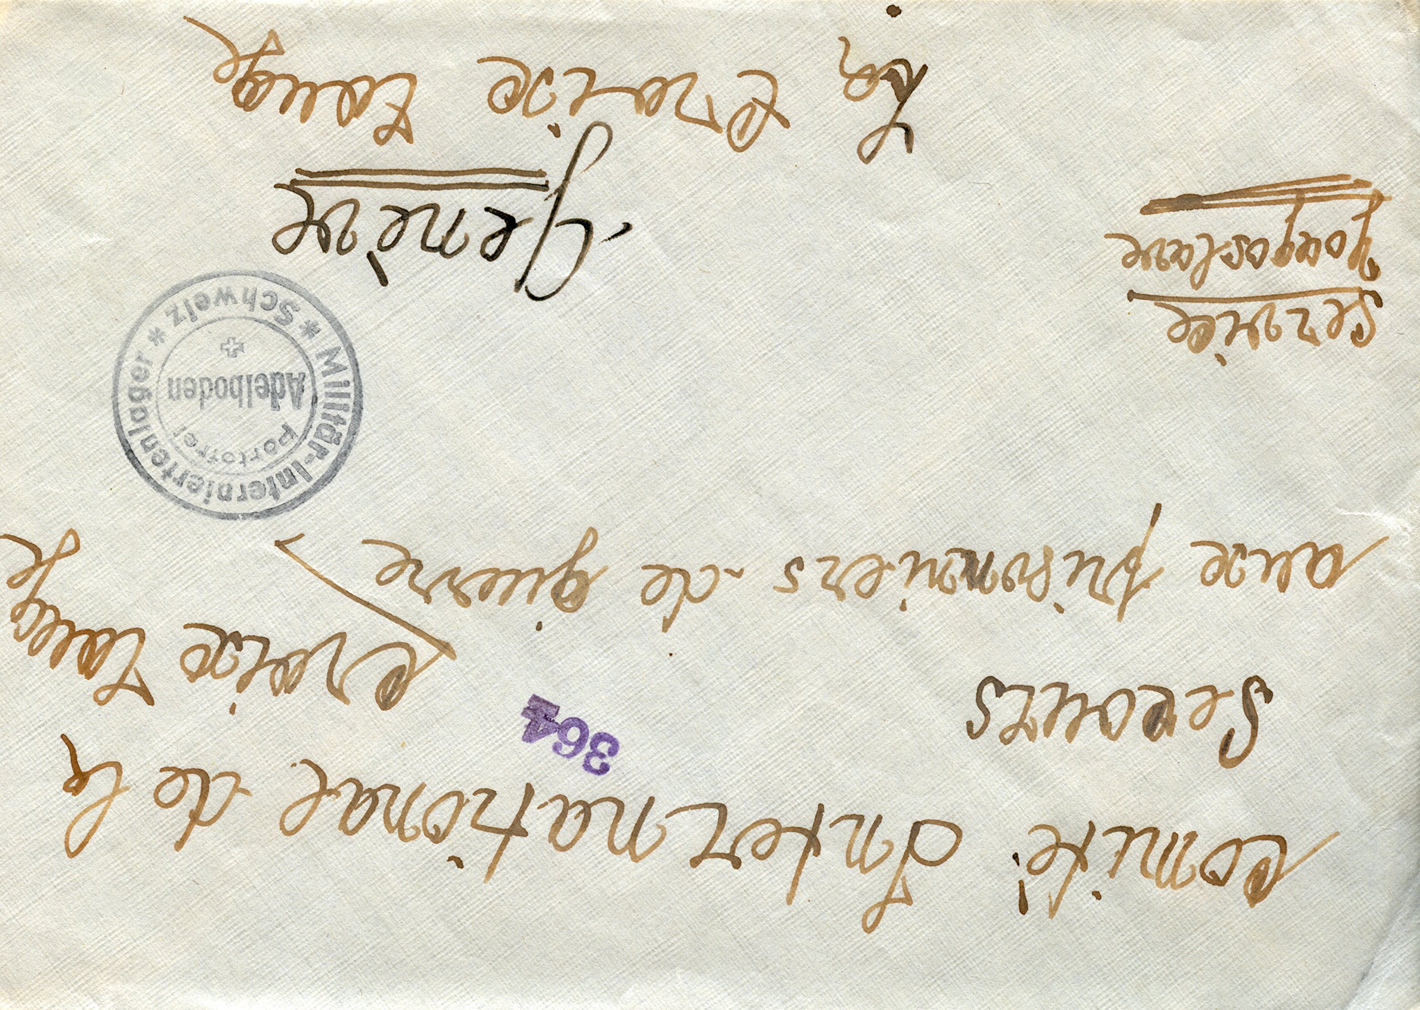 comité International de la
364
croix Rouge
Secours
aux prisonniers de guerre
Militär-Interniertenlager * Schweiz *
portofrei
Adelboden
Service
Yougoslave
Genève
La croix Rouge